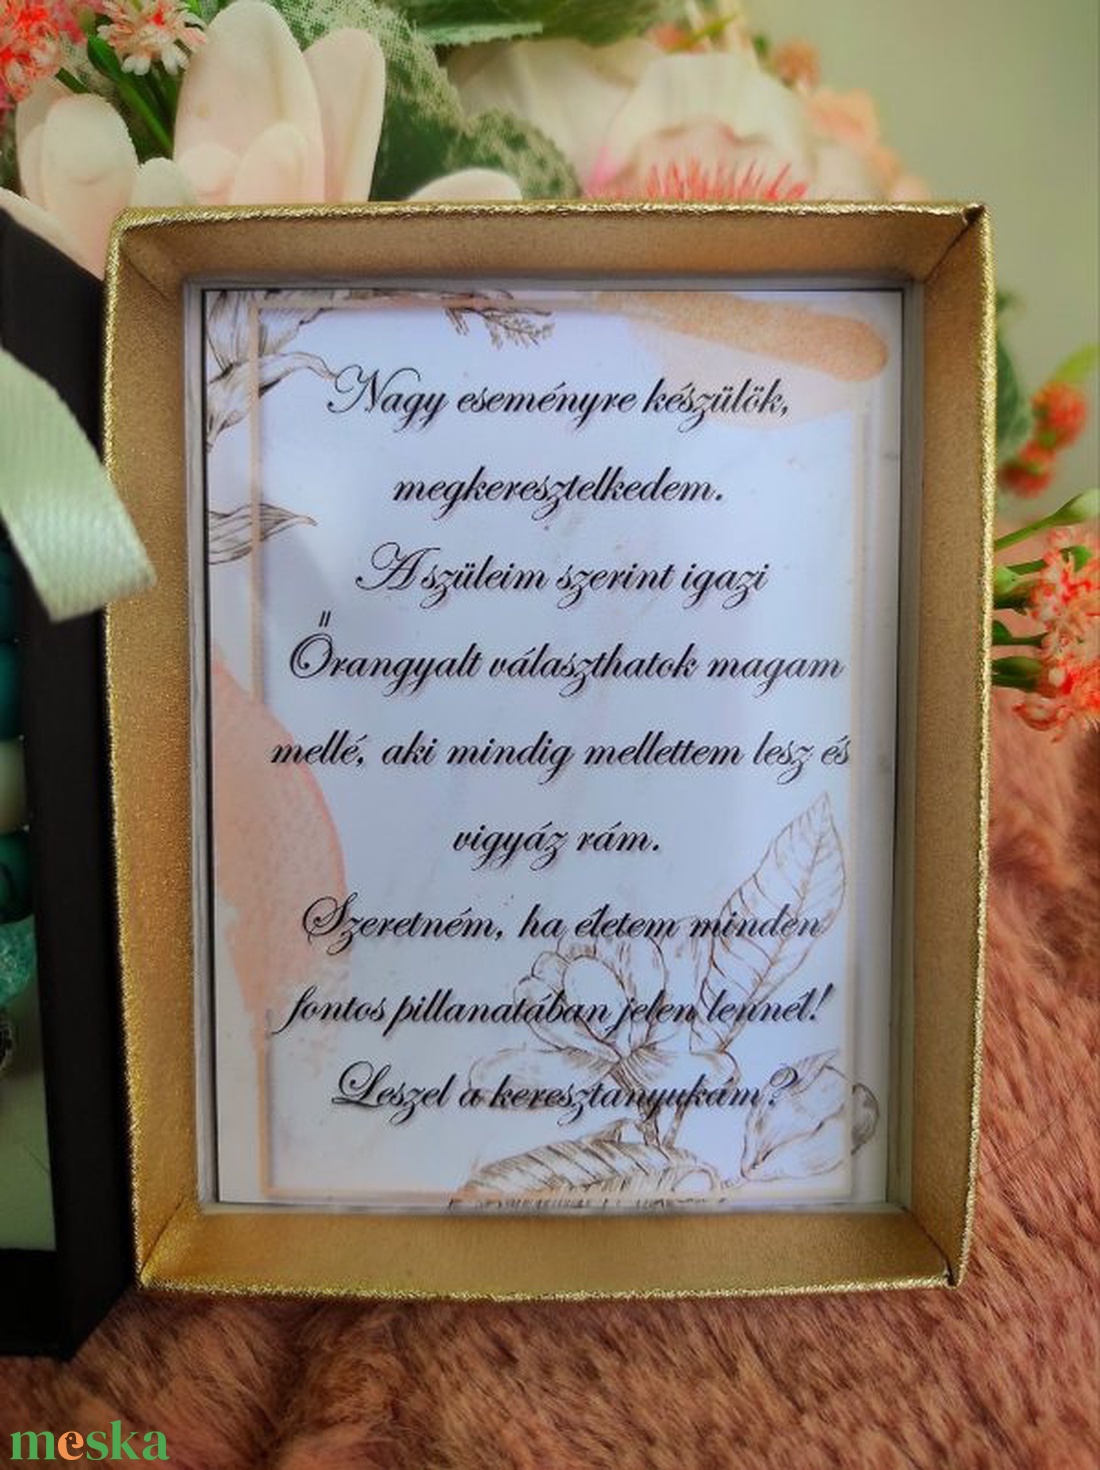 Nagy eseményre készülök,
megkeresztelkedem.
A szüleim szerint igazi
Őrangyalt választhatok magam
mellé, aki mindig mellettem lesz és
vigyáz rám.
Szeretném, ha életem minden
fontos pillanatában jelen lennél!
Leszel a keresztanyukám?
meska